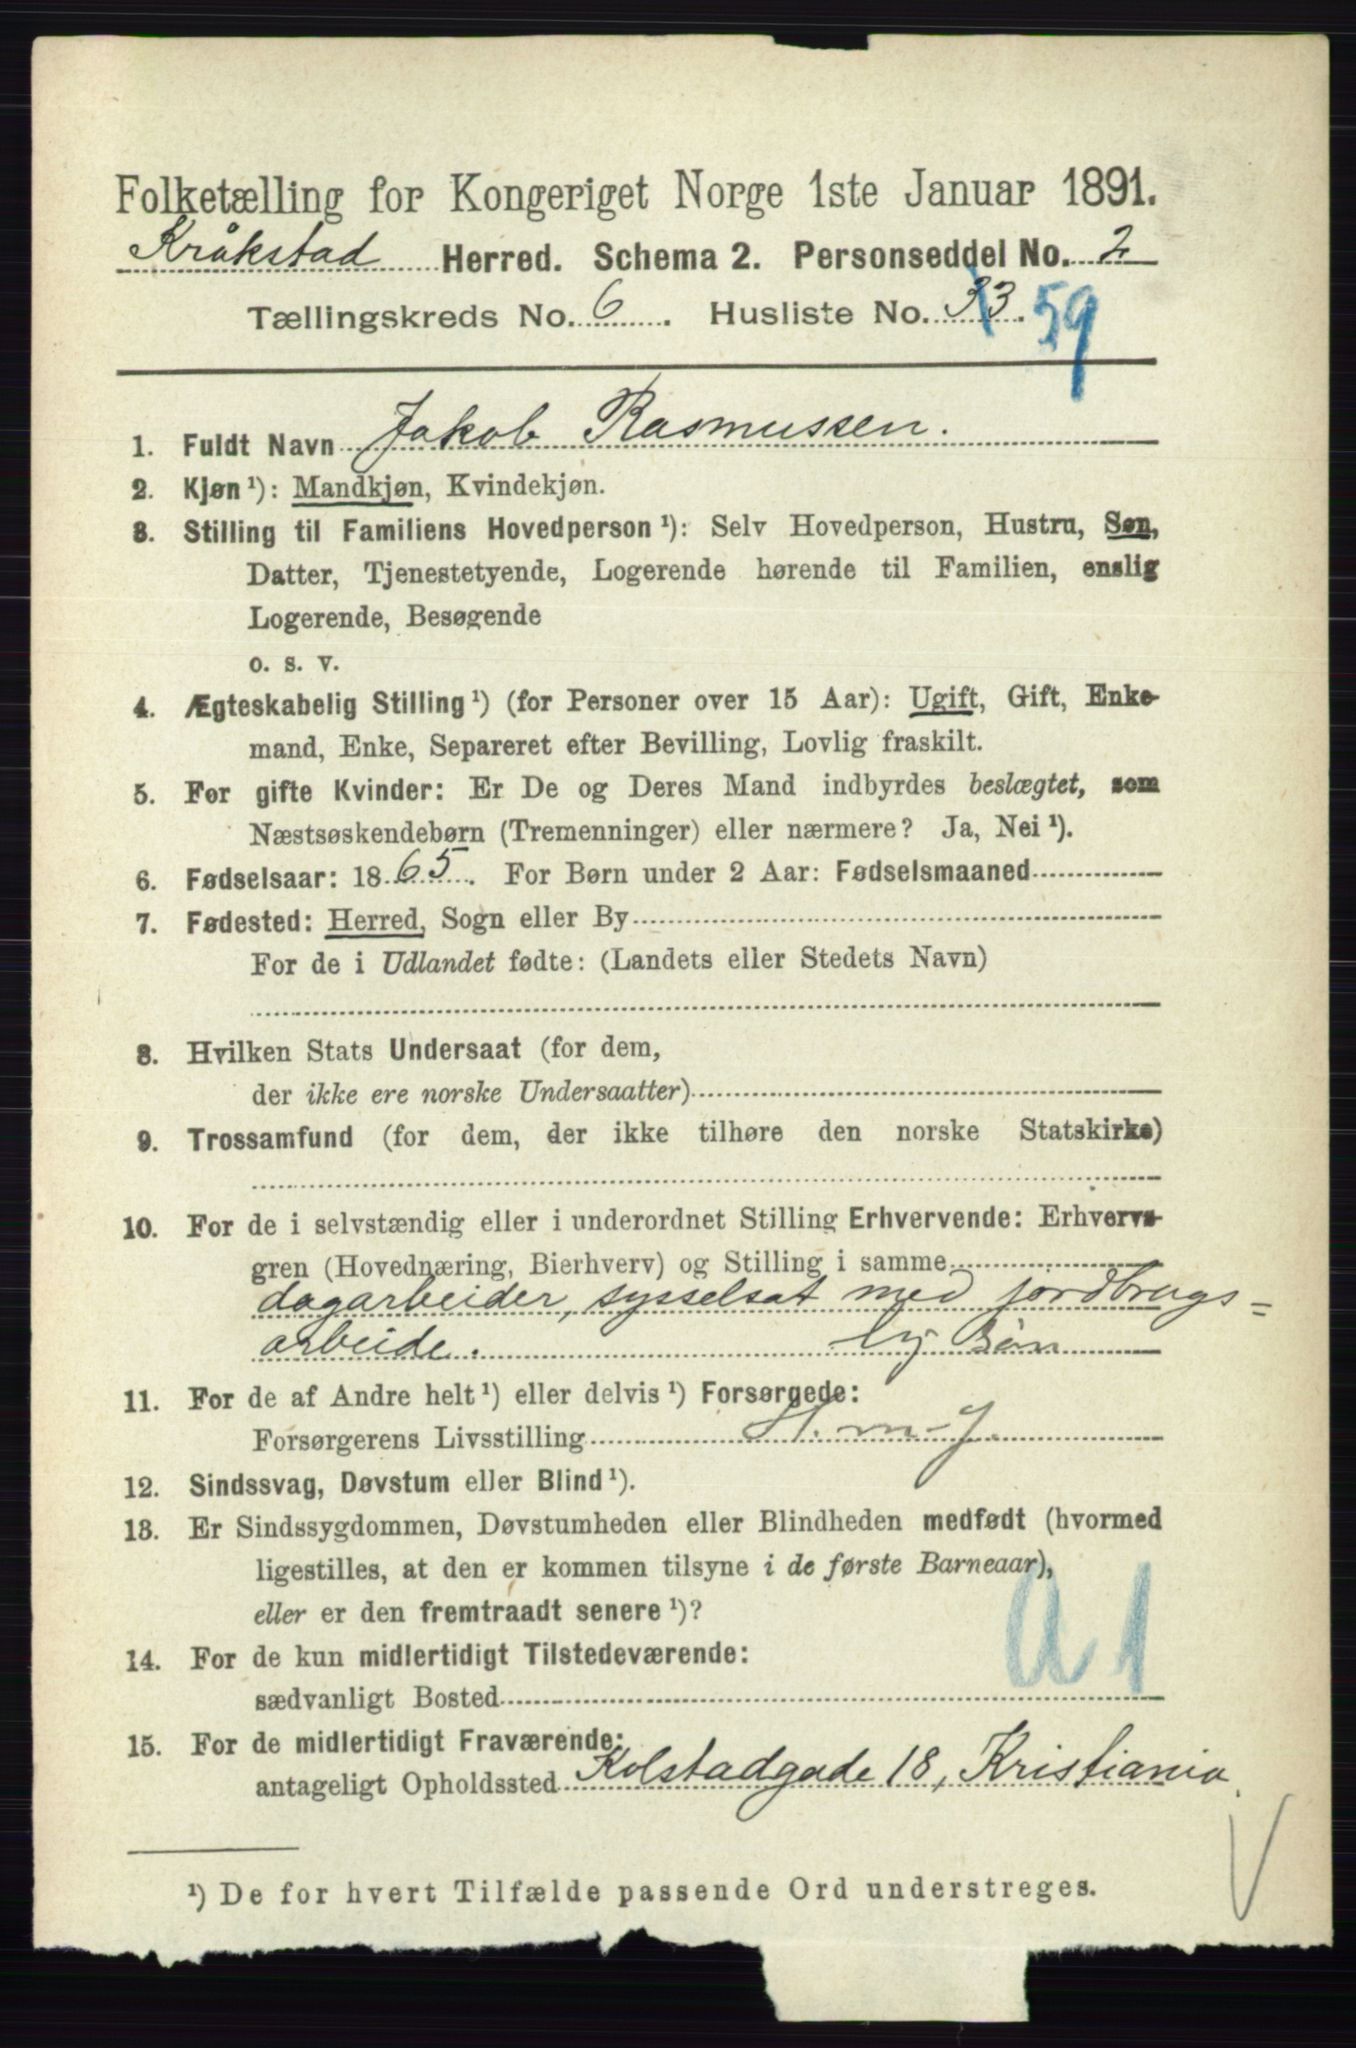 Folketælling for Kongeriget Norge 1ste Januar 1891.
Kråkstad Herred. Schema 2. Personseddel No. 2
Tællingskreds No. 6. Husliste No. 33. 59
1. Fuldt Navn Jakob Rasmussen.
2. Kjøn ¹): Mandkjøn, Kvindekjøn.
3. Stilling til Familiens Hovedperson ¹): Selv Hovedperson, Hustru, Søn,
Datter, Tjenestetyende, Logerende hørende til Familien, enslig
Logerende, Besøgende
o. s. v.
4. Ægteskabelig Stilling ¹) (for Personer over 15 Aar): Ugift, Gift, Enke-
mand, Enke, Separeret efter Bevilling, Lovlig fraskilt.
5. For gifte Kvinder: Er De og Deres Mand indbyrdes beslægtet, som
Næstsøskendebørn (Tremenninger) eller nærmere? Ja, Nei ¹).
6. Fødselsaar: 1865. For Børn under 2 Aar: Fødselsmaaned
7. Fødested: Herred, Sogn eller By
For de i Udlandet fødte: (Landets eller Stedets Navn)
8. Hvilken Stats Undersaat (for dem,
der ikke ere norske Undersaatter)
9. Trossamfund (for dem, der ikke tilhøre den norske Statskirke)
10. For de i selvstændig eller i underordnet Stilling Erhvervende: Erhvervs-
gren (Hovednæring, Bierhverv) og Stilling i samme
dagarbeider, sysselsat med jordbrugs=
arbeide. Søn
11. For de af Andre helt ¹) eller delvis ¹) Forsørgede:
Forsørgerens Livsstilling H. m-J.
12. Sindssvag, Døvstum eller Blind ¹).
13. Er Sindssygdommen, Døvstumheden eller Blindheden medfødt (hvormed
ligestilles, at den er kommen tilsyne i de første Barneaar),
eller er den fremtraadt senere ¹)?
a 1
14. For de kun midlertidigt Tilstedeværende:
sædvanligt Bosted
15. For de midlertidigt Fraværende:
antageligt Opholdssted Kolstadgade 18, Kristiania.
¹) De for hvert Tilfælde passende Ord understreges.